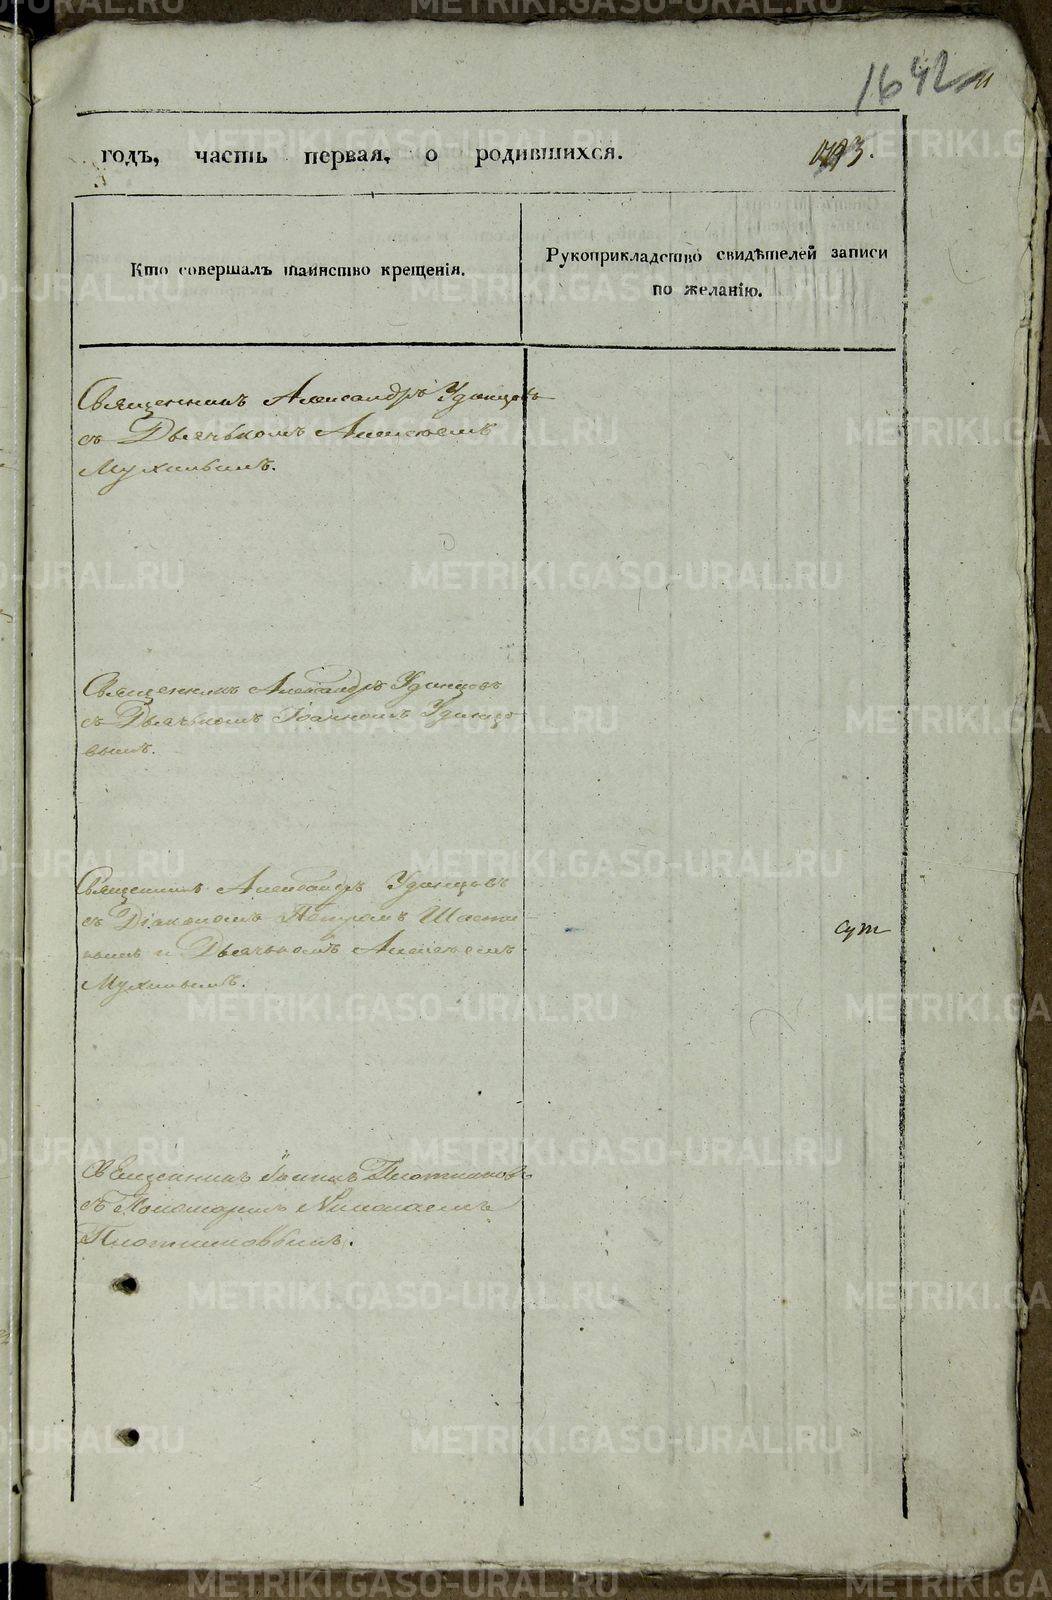 1642
годъ, часть первая, о родившихся.
Кто совершалъ таинство крещенія.
Рукоприкладство свидѣтелей записи
по желанію.
Священникъ Александръ Удинцовъ
съ Дьячькомъ Алексѣемъ
Мухинымъ.
Священникъ Александръ Удинцовъ
съ Дьячькомъ Іоанномъ Удинцо
вымъ.
Священникъ Александръ Удинцовъ
съ Діакономъ Петромъ
и Дьячькомъ Алексѣемъ
Мухинымъ.
Священникъ Іоаннъ Плотниковъ
съ Пономаремъ Николаемъ
Плотниковымъ.
METRIKI.GASO-URAL.RU